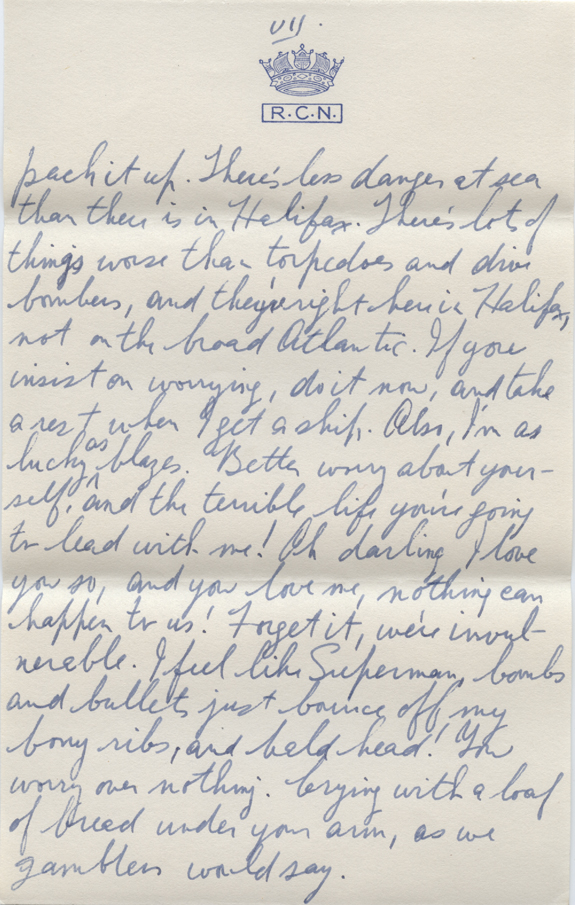 VII.
R.C.N.
pack it up. There's less danger at sea
than there is in Halifax. There's lots of
things worse than torpedoes and dive
bombers, and they're right here in Halifax,
not on the broad Atlantic. If you
insist on worrying, do it now, and take
a rest when I get a ship. Also, I'm as
lucky as blazes. Better worry about your-
self, and the terrible life you're going
to lead with me! Oh darling, I love
you so, and you love me, nothing can
happen to us! Forget it, we're invul-
nerable. I feel like Superman, bombs
and bullets just bounce off my
bony ribs, and bald head! You
worry over nothing. Crying with a loaf
of bread under your arm, as we
gamblers would say.